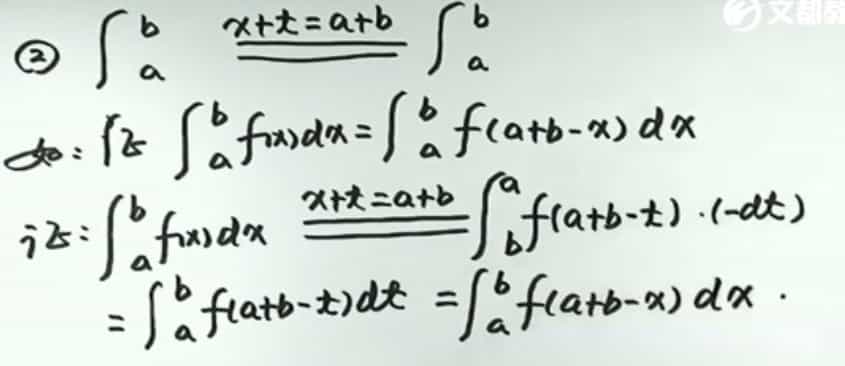 文都教
② ∫_a^b x+t=a+b ∫_a^b
如：证 ∫_a^b f(x)dx = ∫_a^b f(a+b-x) dx
证：∫_a^b f(x)dx x+t=a+b ∫_b^a f(a+b-t)·(-dt)
= ∫_a^b f(a+b-t)dt = ∫_a^b f(a+b-x) dx .